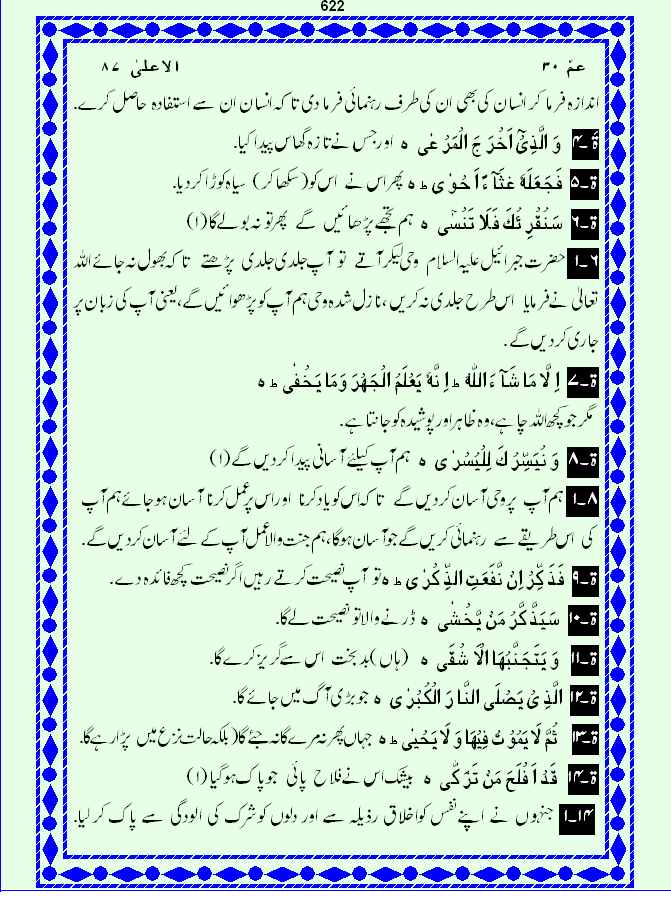 622
عمّ ۳۰ الاعلىٰ ۸۷
اندازہ فرما کر انسان کی بھی ان کی طرف رہنمائی فرما دی تاکہ انسان ان سے استفادہ حاصل کرے.
ۃ۔۴ وَ الَّذِیْۤ اَخْرَجَ الْمَرْعٰی ہ اور جس نے تازہ گھاس پیدا کیا.
ۃ۔۵ فَجَعَلَهٗ غُثَآءً اَحْوٰی ط ہ پھر اس نے اس کو (سکھا کر) سیاہ کوڑا کر دیا.
ۃ۔۶ سَنُقْرِئُكَ فَلَا تَنْسٰۤی ہ ہم تجھے پڑھائیں گے پھر تو نہ بولے گا (۱)
۶۔۱ حضرت جبرائیل علیہ السلام وحی لیکر آتے تو آپ جلدی جلدی پڑھتے تاکہ بھول نہ جائے اللہ
تعالٰی نے فرمایا اس طرح جلدی نہ کریں، نازل شدہ وحی ہم آپ کو پڑھوائیں گے، یعنی آپ کی زبان پر
جاری کر دیں گے.
ۃ۔۷ اِلَّا مَا شَآءَ اللّٰهُ ط اِنَّهٗ یَعْلَمُ الْجَهْرَ وَ مَا یَخْفٰی ط ہ
مگر جو کچھ اللہ چاہے، وہ ظاہر اور پوشیدہ کو جانتا ہے.
ۃ۔۸ وَ نُیَسِّرُكَ لِلْیُسْرٰی ہ ہم آپ کیلئے آسانی پیدا کر دیں گے (۱)
۸۔۱ ہم آپ پر وحی آسان کر دیں گے تاکہ اس کو یاد کرنا اور اس پر عمل کرنا آسان ہو جائے ہم آپ
کی اس طریقے سے رہنمائی کریں گے جو آسان ہوگا، ہم جنت والا عمل آپ کے لئے آسان کر دیں گے.
ۃ۔۹ فَذَكِّرْ اِنْ نَّفَعَتِ الذِّكْرٰی ط ہ تو آپ نصیحت کرتے رہیں اگر نصیحت کچھ فائدہ دے.
ۃ۔۱۰ سَیَذَّكَّرُ مَنْ یَّخْشٰی ہ ڈرنے والا تو نصیحت لے گا.
ۃ۔۱۱ وَ یَتَجَنَّبُهَا الْاَشْقَی ہ (ہاں) بد بخت اس سے گریز کرے گا.
ۃ۔۱۲ الَّذِیْ یَصْلَی النَّارَ الْكُبْرٰی ہ جو بڑی آگ میں جائے گا.
ۃ۔۱۳ ثُمَّ لَا یَمُوْتُ فِیْهَا وَ لَا یَحْیٰی ط ہ جہاں پھر نہ مرے گا نہ جئے گا (بلکہ حالت نزع میں پڑا رہے گا.
ۃ۔۱۴ قَدْ اَفْلَحَ مَنْ تَزَكّٰی ہ بیشک اس نے فلاح پائی جو پاک ہو گیا (۱)
۱۴۔۱ جنہوں نے اپنے نفس کو اخلاق رذیلہ سے اور دلوں کو شرک کی الودگی سے پاک کر لیا.